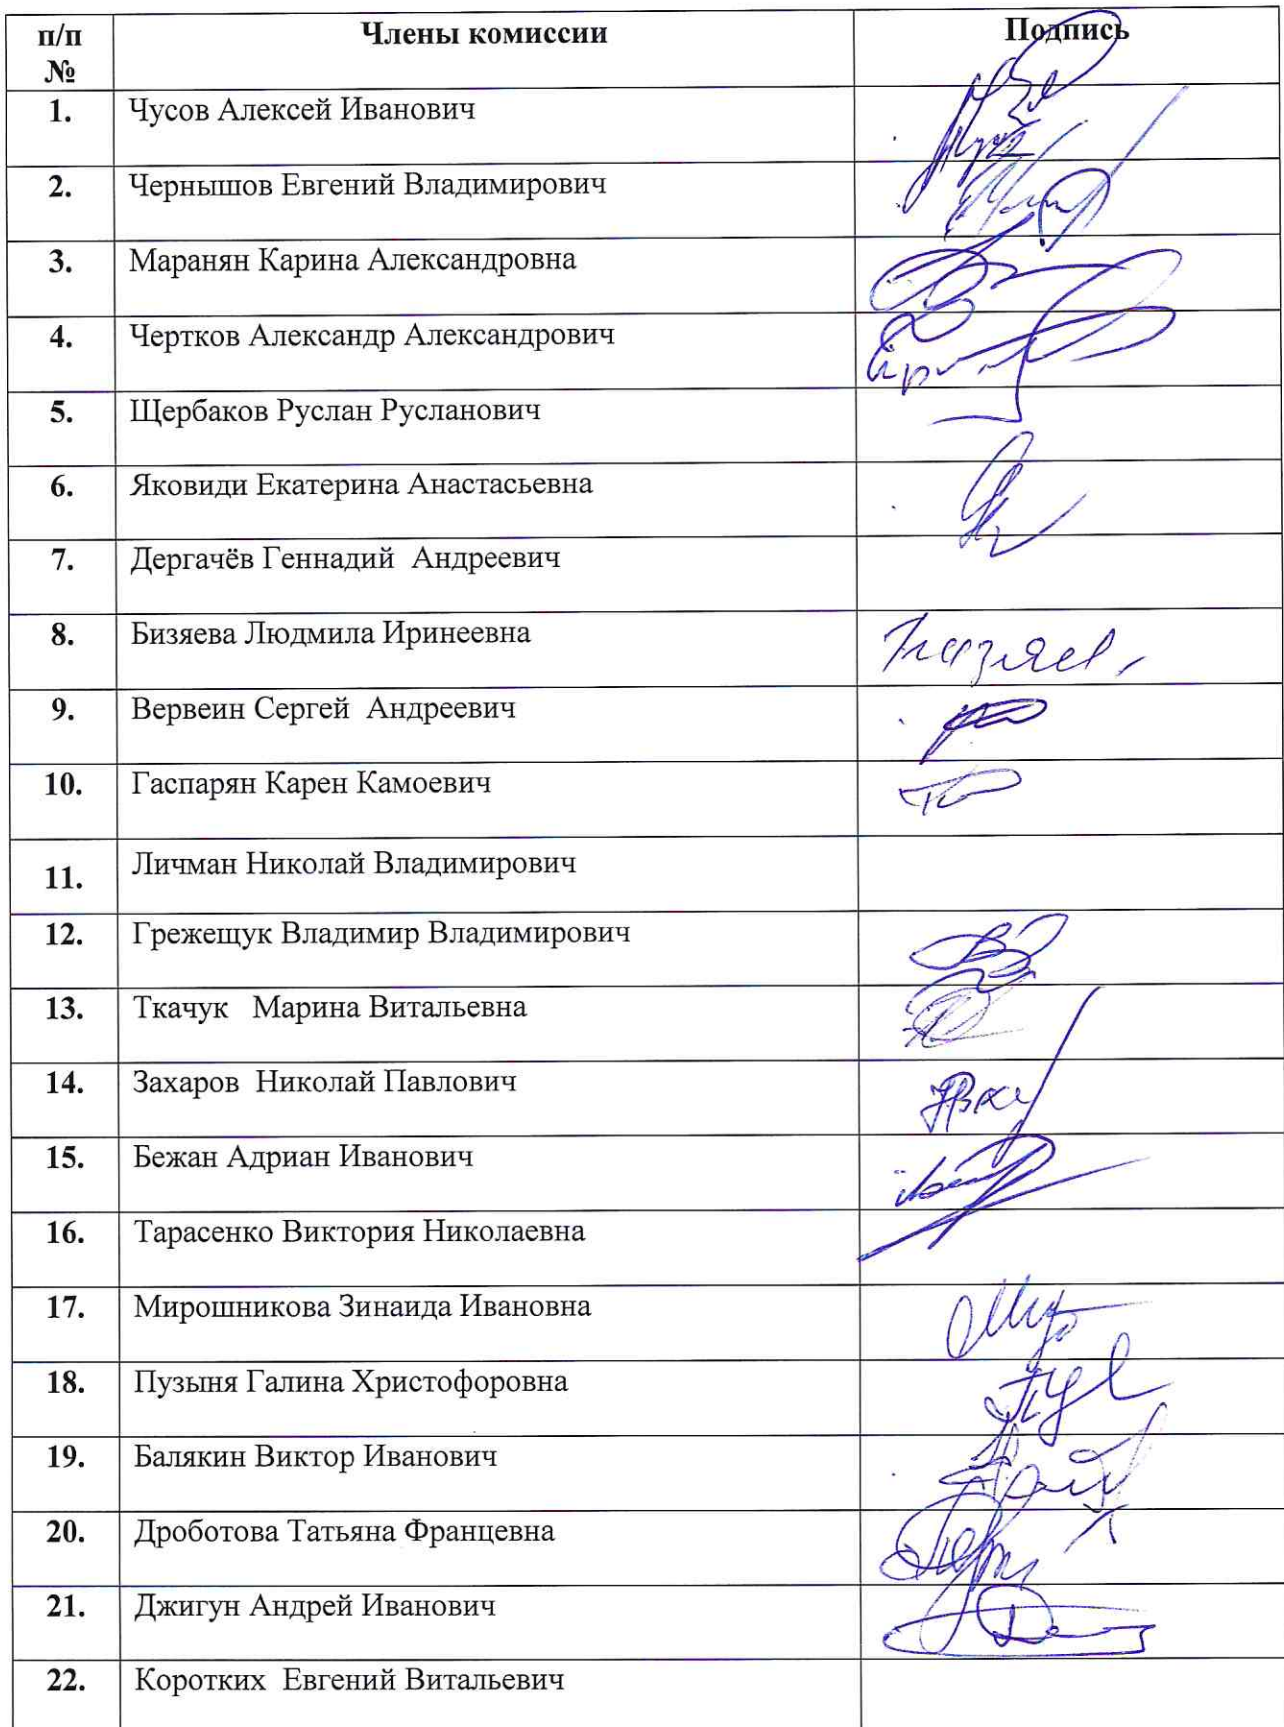 п/п № Члены комиссии Подпись
1. Чусов Алексей Иванович
2. Чернышов Евгений Владимирович
3. Маранян Карина Александровна
4. Чертков Александр Александрович
5. Щербаков Руслан Русланович
6. Яковиди Екатерина Анастасьевна
7. Дергачёв Геннадий Андреевич
8. Бизяева Людмила Иринеевна
9. Вервеин Сергей Андреевич
10. Гаспарян Карен Камоевич
11. Личман Николай Владимирович
12. Грежещук Владимир Владимирович
13. Ткачук Марина Витальевна
14. Захаров Николай Павлович
15. Бежан Адриан Иванович
16. Тарасенко Виктория Николаевна
17. Мирошникова Зинаида Ивановна
18. Пузыня Галина Христофоровна
19. Балякин Виктор Иванович
20. Дроботова Татьяна Францевна
21. Джигун Андрей Иванович
22. Коротких Евгений Витальевич